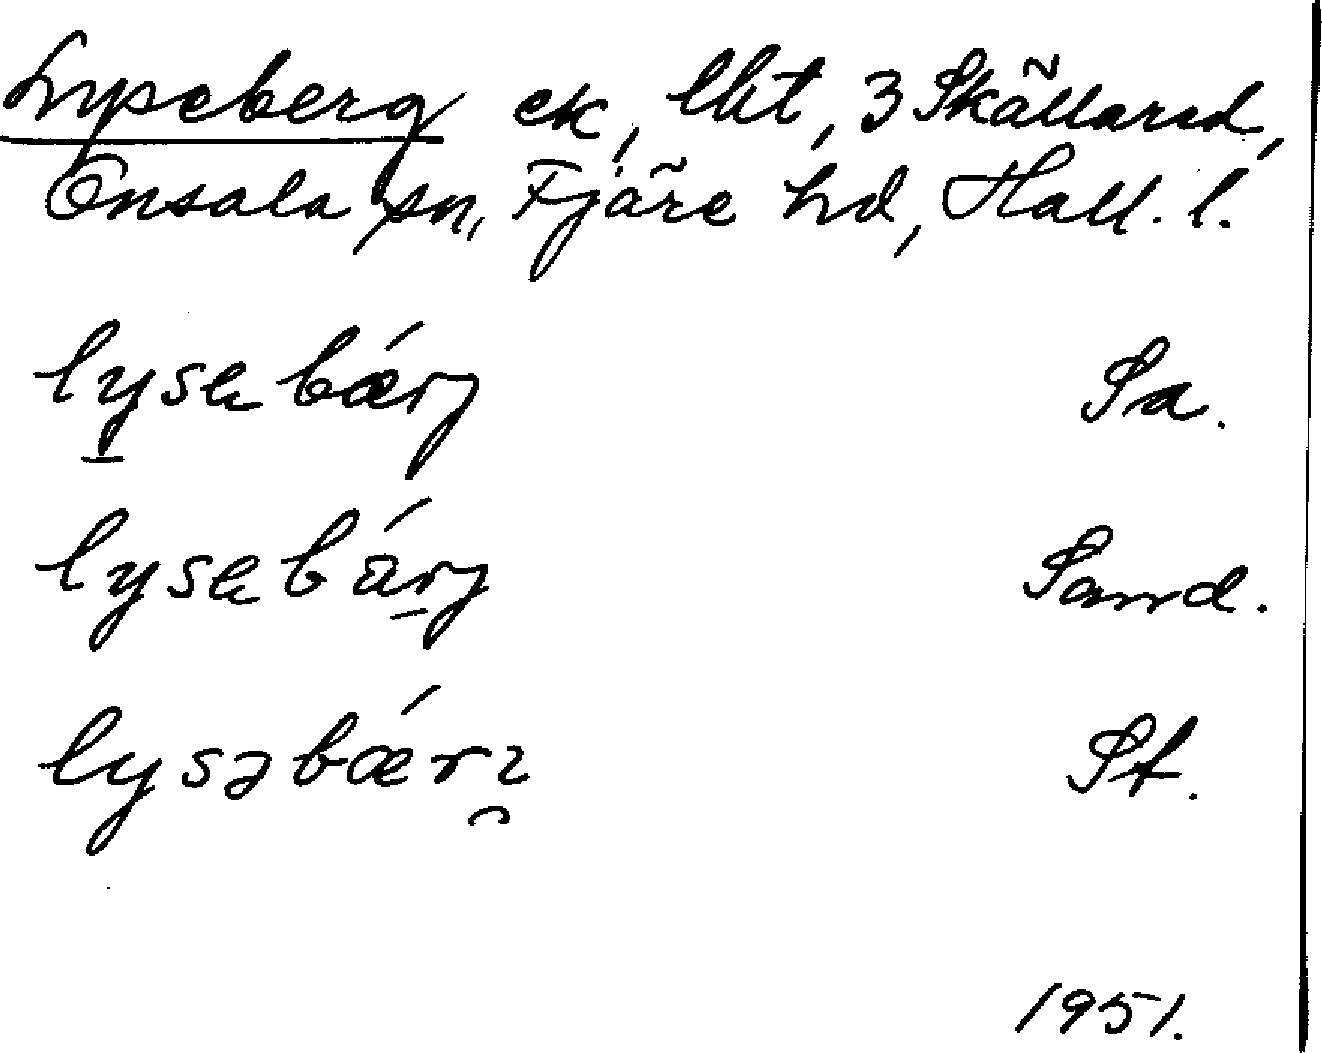 Lyseberg ek, lht, 3 Skållared,
Onsala sn, Fjäre hd, Hall. l.
lysebǽrj Sa.
lysebárj Sand.
lysəbǽrɿ St.
1951.